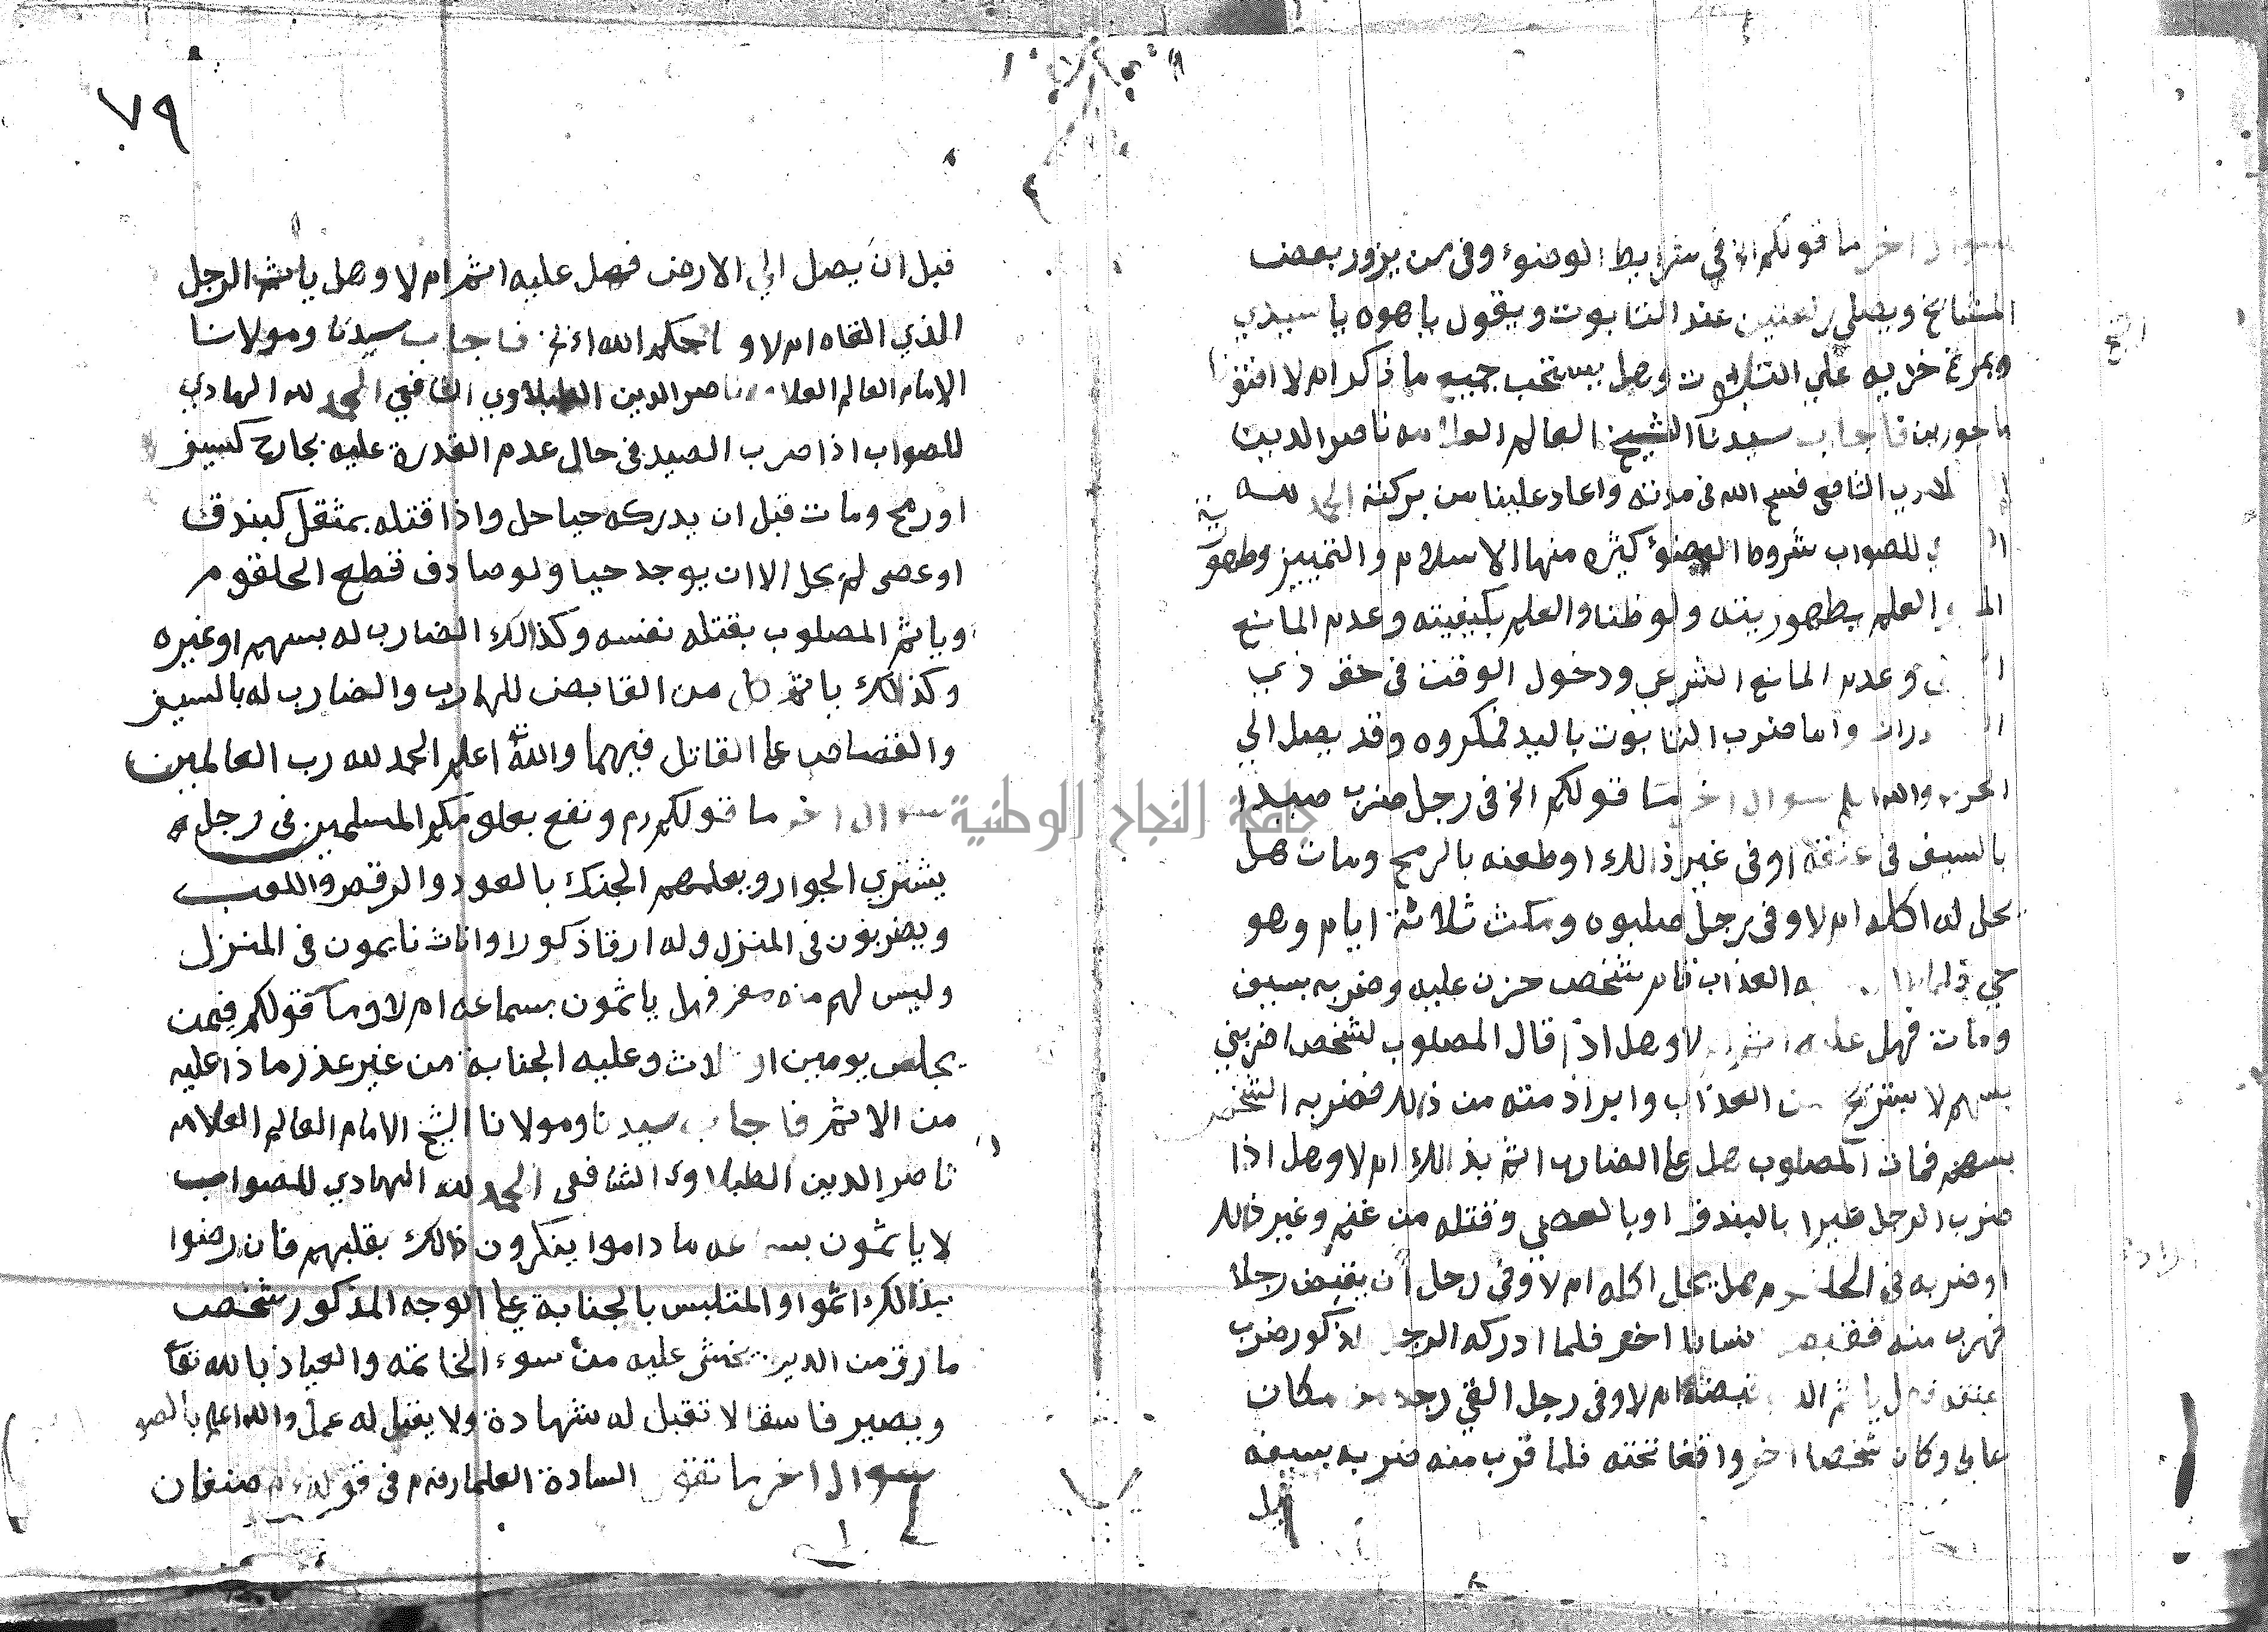 سوال اخر ما قولكم الخ في شرايط الوضوء وفي من يزور بعض
المشايخ ويصلي ركعتين عند التابوت ويقول ياهوه يا سيدي
ويمرغ خديه علي التابوت وهل يستحب جميع ما ذكر ام لا افتونا
ماجورين فاجاب سيدنا الشيخ العالم العلامه ناصر الدين
الشافعي فسح الله في مدته واعاد علينا من بركته الحمد لله
للصواب شروط الوضوء كثيره منها الاسلام والتمييز وطهورية
العلم بطهوريته ولو ظنا والعلم بكيفيته وعدم المانع
وعدم المانع الشرعي ودخول الوقت في حق ذي
واما ضرب التابوت باليد فمكروه وقد يصل الي
والله اعلم سوال اخر ما قولكم الخ في رجل ضرب صيدا
بالسيف في عنقه او في غير ذالك او طعنه بالرمح ومات هل
يحل له اكله ام لا وفي رجل صلبوه ومكث ثلاثة ايام وهو
حي العذاب قام شخص حزن عليه وضربه بسيف
ومات فهل عليه اثم لا وهل اذا قال المصلوب لشخص اضربني
بسهم لا ستريح من العذاب وابراذمته من ذلك فضربه الشخص
بسهم فمات المصلوب هل على الضارب اثم بذالك ام لا وهل اذا
ضرب الرجل طيرا بالبندق او بالعصي وقتله من غنم وغير ذلك
او ضربه في الحلقوم هل يحل اكله ام لا وفي رجل ان يقبض رجلا
فهرب منه فقبض انسانا اخر فلما ادركه الرجل المذكور ضرب
عنقه فهل ياثم ام لا وفي رجل القي رجل من مكان
عالي وكان شخصا اخر واقفا تحته فلما قرب منه ضربه بسيفه
قبل
٧٩
قبل ان يصل الي الارض فهل عليه اثم ام لا وهل ياثم الرجل
الذي القاه ام لا و احكم الله الخ فاجاب سيدنا ومولانا
الامام العالم العلامه ناصر الدين الطبلاوي الشافعي الحمد لله الهادي
للصواب اذا ضرب الصيد في حال عدم القدرة عليه بجارح كسيف
او رمح ومات قبل ان يدركه حيا حل واذا قتله بمثقل كبندق
او عصى لم يحل الا ان يوجد حيا ولو صادف قطع الحلقوم
وياثم المصلوب بقتله نفسه وكذالك الضارب له بسهم او غيره
وكذلك ياثم كل من القابض للهارب والضارب له بالسيف
والقصاص على القاتل فيهما والله اعلم الحمد لله رب العالمين
سوال اخر ما قولكم رم ونفع بعلومكم المسلمين في رجل
يشتري الجوار ويعلمهم الجنك بالعود والرقص واللعب
ويضربون في المنزل وله ارقا ذكورا واناث نايمون في المنزل
وليس لهم منه مفر فهل ياثمون بسماعه ام لا وما قولكم فيمن
يجلس يومين او ثلاث وعليه الجنابة من غير عذر ماذا عليه
من الاثم فاجاب سيدنا ومولانا الشيخ الامام العالم العلامه
ناصر الدين الطبلاوى الشافعى الحمد لله الهادي للصواب
لا ياثمون بسماعه ما داموا ينكرون ذالك بقلبهم فان رضوا
بذالك اثموا والمتلبس بالجنابة على الوجه المذكور شخص
مارق من الدين يخشى عليه من سوء الخاتمه والعياذ بالله تعا
ويصير فاسقا لا تقبل له شهادة ولا يقبل له عمل والله اعلم بالصو
سوال اخر ما تقول السادة العلما رضم في قوله صنفان
جامعة النجاح الوطنية